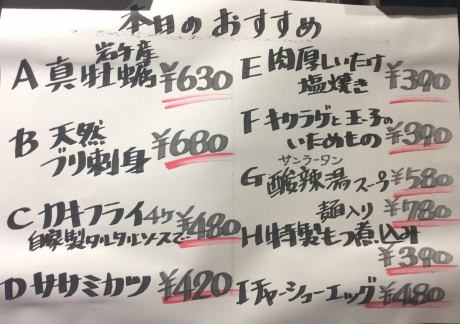 本日のおすすめ
岩手産
A 真牡蠣 ¥630
B 天然
ブリ刺身 ¥680
C カキフライ4ケ
自家製タルタルソースで ¥480
D ササミカツ ¥420
E 肉厚しいたけ
塩焼き ¥390
F キクラゲと玉子の
いためもの ¥390
サンラータン
G 酸辣湯スープ ¥580
麺入り ¥780
H 特製もつ煮込み
¥390
I チャーシューエッグ ¥480